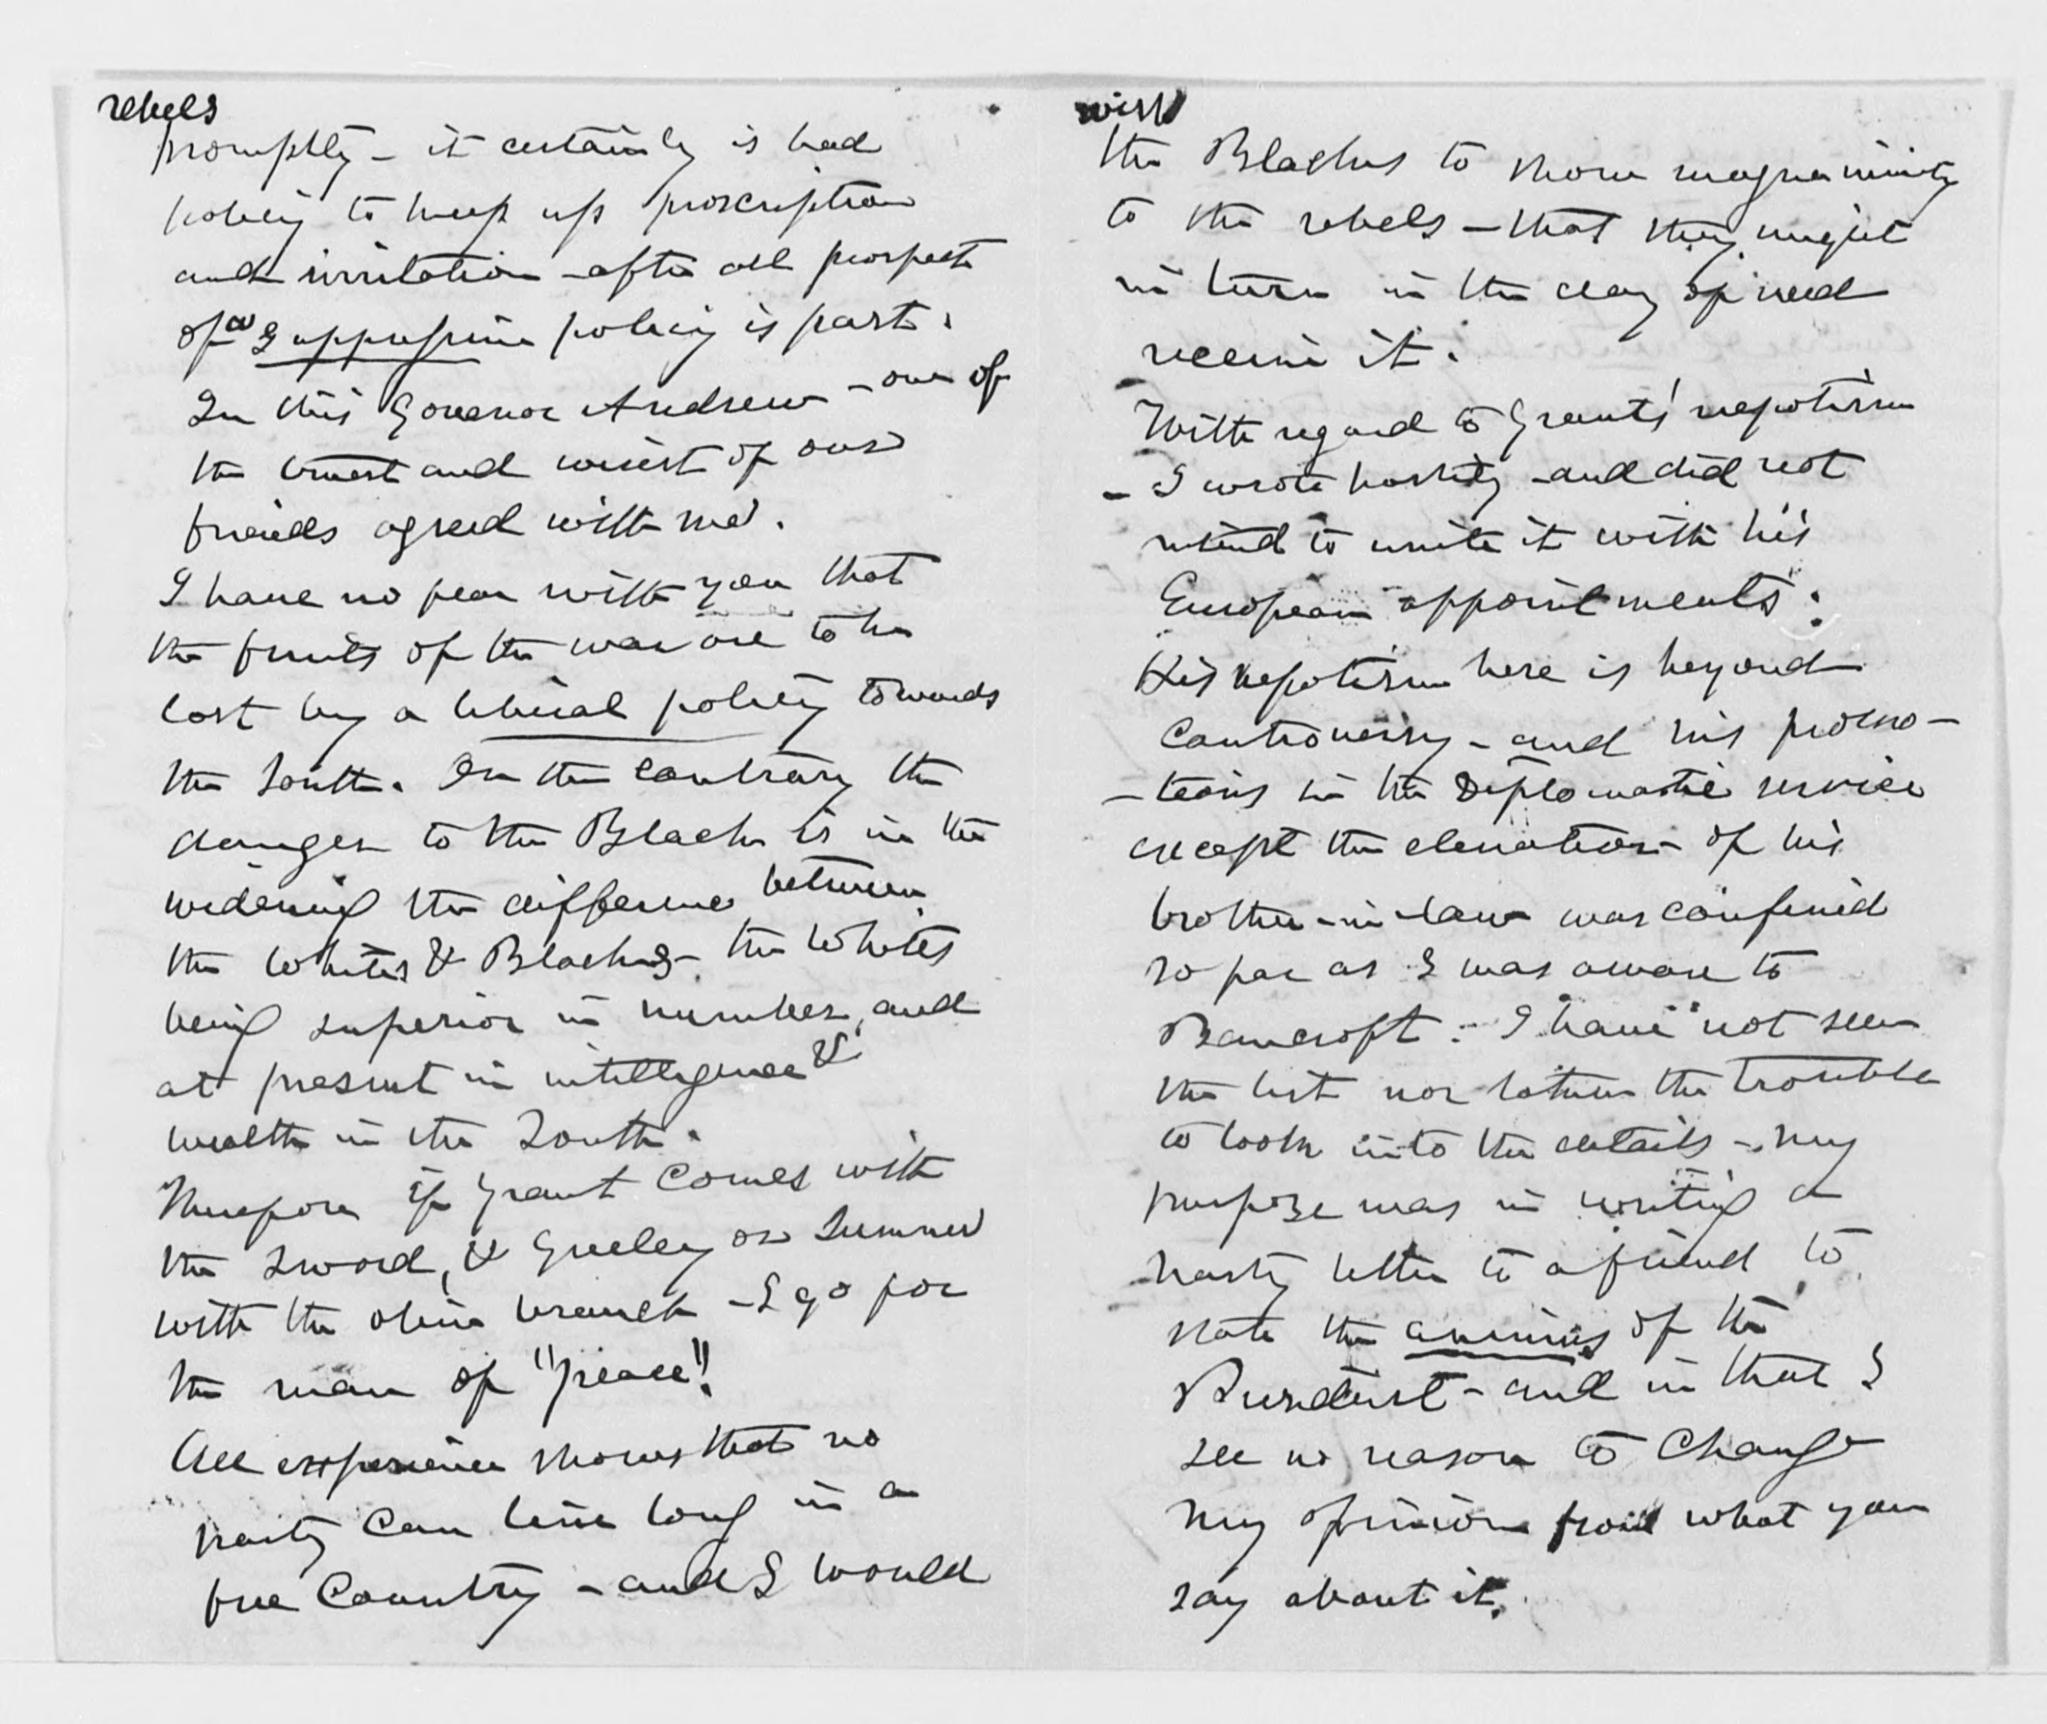 rebels
promptly - it certainly is bad
policy to keep up proscription
and irritation - after all prospect
of a Suppressive policy is past.
In this Governor Andrew - one of
the truest and wisest of our
friends agreed with me.
I have no fear with you that
the fruits of the war are to be
lost by a liberal policy towards
the South. On the contrary the
danger to the Blacks is in the
widening the difference between
the Whites & Blacks - the Whites
being superior in number, and
at present in intelligence &
wealth in the South.
Therefore if Grant comes with
the sword, & Greeley or Sumner
with the olive branch - I go for
the man of "peace"!
All experience shows that no
party can live long in a
free Country - and I would
wish
the Blacks to show magnanimity
to the rebels - that they might
in turn in the day of need
receive it.
With regard to Grants' nepotism
- I wrote hastily - and did not
intend to unite it with his
European appointments:
His nepotism here is beyond
Controversy - and his promo-
-tions in the Diplomatic service
except the elevation of his
brother-in-law was confined
so far as I was aware to
Bancroft. - I have not seen
the list nor taken the trouble
to look into the details - my
purpose was in writing a
hasty letter to a friend to
note the animus of the
President - and in that I
see no reason to Change
my opinion from what you
say about it.